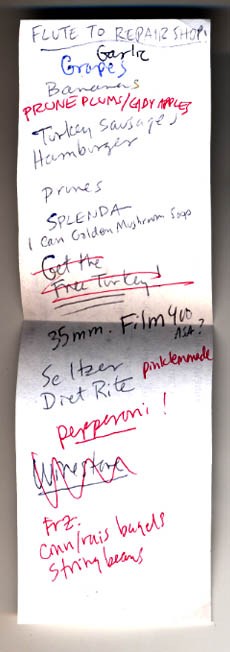 FLUTE TO REPAIR SHOP!
Garlic
Grapes
Bananas
PRUNE PLUMS/LADY APPLES
Turkey Sausages
Hamburger
Prunes
SPLENDA
1 Can Golden Mushroom Soup
Get the
Free Turkey!
35mm. Film 400
ASA?
Seltzer
pinklemonade
Diet Rite
pepperoni!
Frz.
cinn/rais bagels
string beans